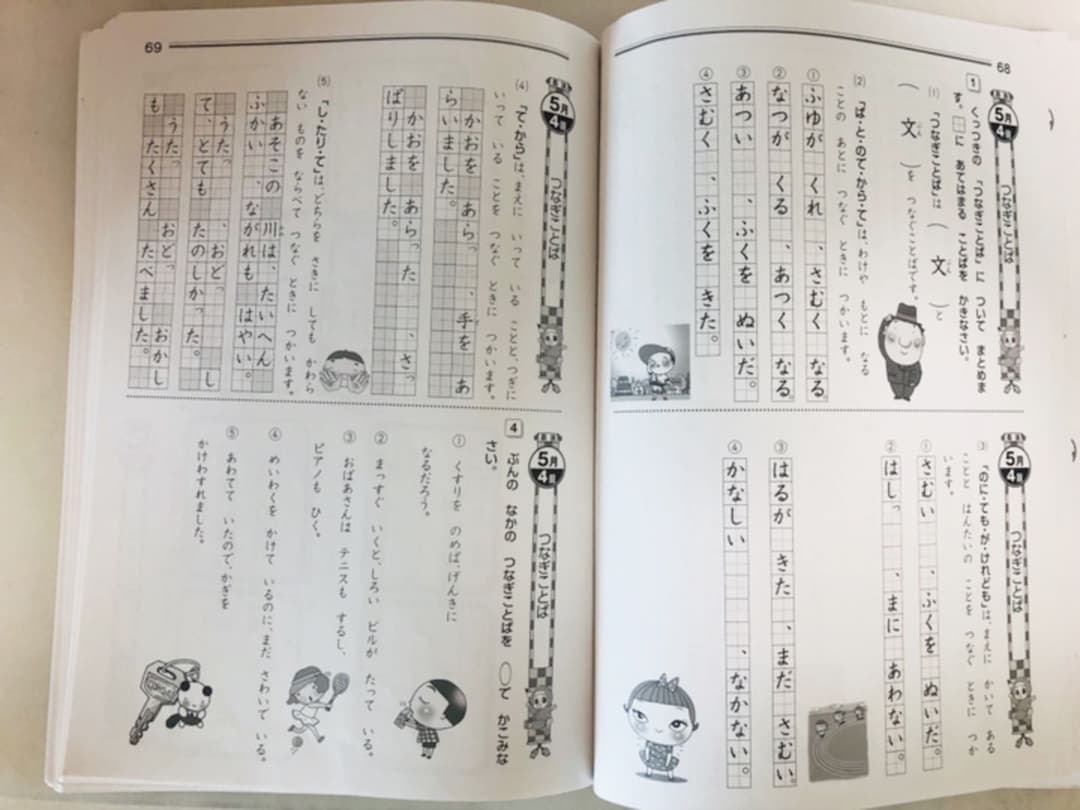 68
5月
4週
つなぎことば
1 くっつきの 「つなぎことば」に ついて まとめま
す。□に あてはまる ことばを かきなさい。
(1) 「つなぎことば」は ( 文 )と
( 文 )を つなぐことばです。
ぶん
ぶん
(2) 「ば・と・ので・から・て」は、わけや もとに なる
ことの あとに つなぐ ときに つかいます。
① ふゆが くれ 、さむく なる。
② なつが くる 、あつく なる。
③ あつい 、ふくを ぬいだ。
④ さむく 、ふくを きた。
5月
4週
つなぎことば
③ 「のに・ても・が・けれども」は、まえに かいて ある
ことと はんたいの ことを つなぐ ときに つか
います。
① さむい 、ふくを ぬいだ。
② はしっ 、まに あわない。
③ はるが きた 、まだ さむい。
④ かなしい 、なかない。
69
5月
4週
つなぎことば
(4) 「て・から」は、まえに いって いる ことと、つぎに
いって いる ことを つなぐ ときに つかいます。
かおを あらっ 、手を あ
らいました。
かおを あらった 、さっ
ぱりしました。
(5) 「し・たり・て」は、どちらを さきに しても かわら
ない ものを ならべて つなぐ ときに つかいます。
あそこの 川は、たいへん
ふかい 、ながれも はやい。
うたっ 、おどっ し
て、とても たのしかった。
うたっ おどっ おかし
も たくさん たべました。
5月
4週
つなぎことば
4 ぶんの なかの つなぎことばを ○で かこみな
さい。
① くすりを のめば、げんきに
なるだろう。
② まっすぐ いくと、しろい ビルが たって いる。
③ おばあさんは テニスも するし、
ピアノも ひく。
④ めいわくを かけて いるのに、まだ さわいで いる。
⑤ あわてて いたので、かぎを
かけわすれました。